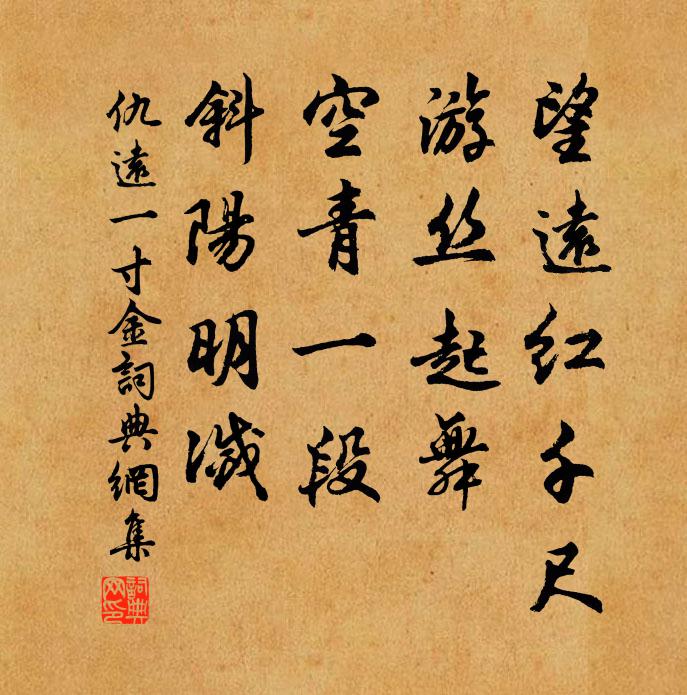 望遠红千尺
游丝起舞
空青一段
斜陽明滅
仇遠一寸金詞典網集
詞典
网印